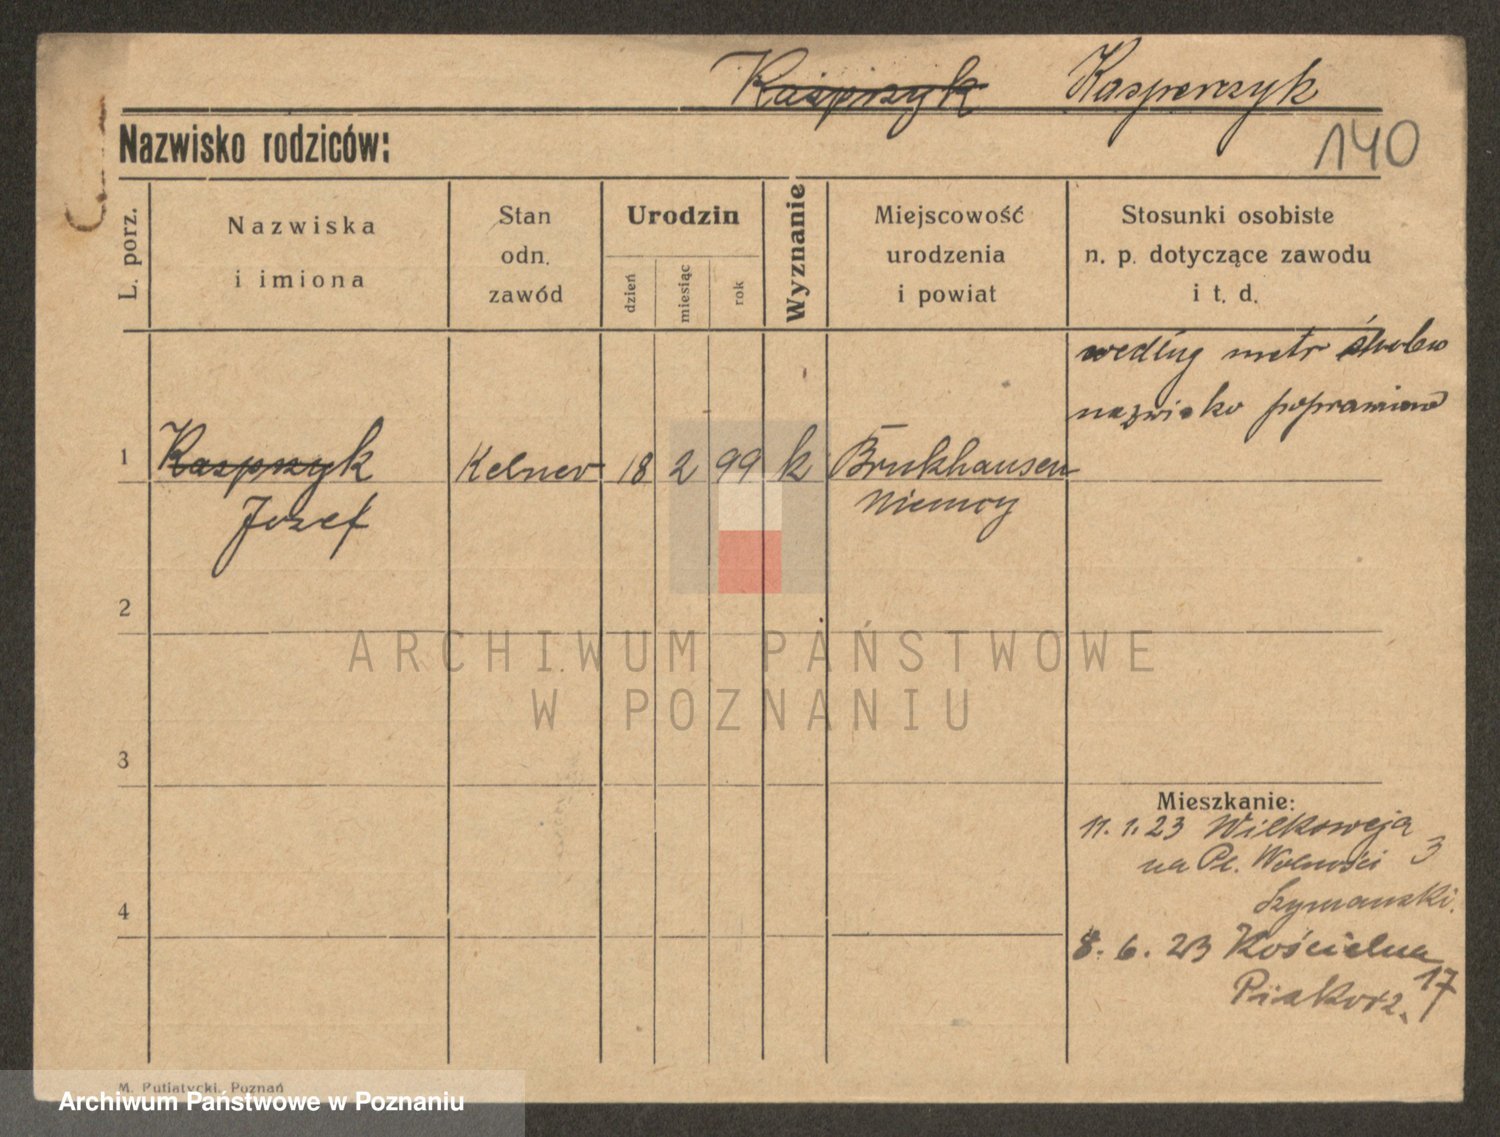 Kasprzyk Kasperczyk
Nazwisko rodziców:
140
L. porz.
Nazwiska
i imiona
Stan
odn.
zawód
Urodzin
dzień
miesiąc
rok
Wyznanie
Miejscowość
urodzenia
i powiat
Stosunki osobiste
n. p. dotyczące zawodu
i t. d.
według metr
nazwisko poprawiono
1 Kasprzyk Kelner 18 2 99 k Brukhausen
Józef Niemcy
2
3
4
ARCHIWUM PAŃSTWOWE
W POZNANIU
Mieszkanie:
11. 1. 23 Wilkowyja
na Pl. Wolności 3
Szymanski.
8. 6. 23 Kościelna
17
M. Putiatycki, Poznań
Archiwum Państwowe w Poznaniu